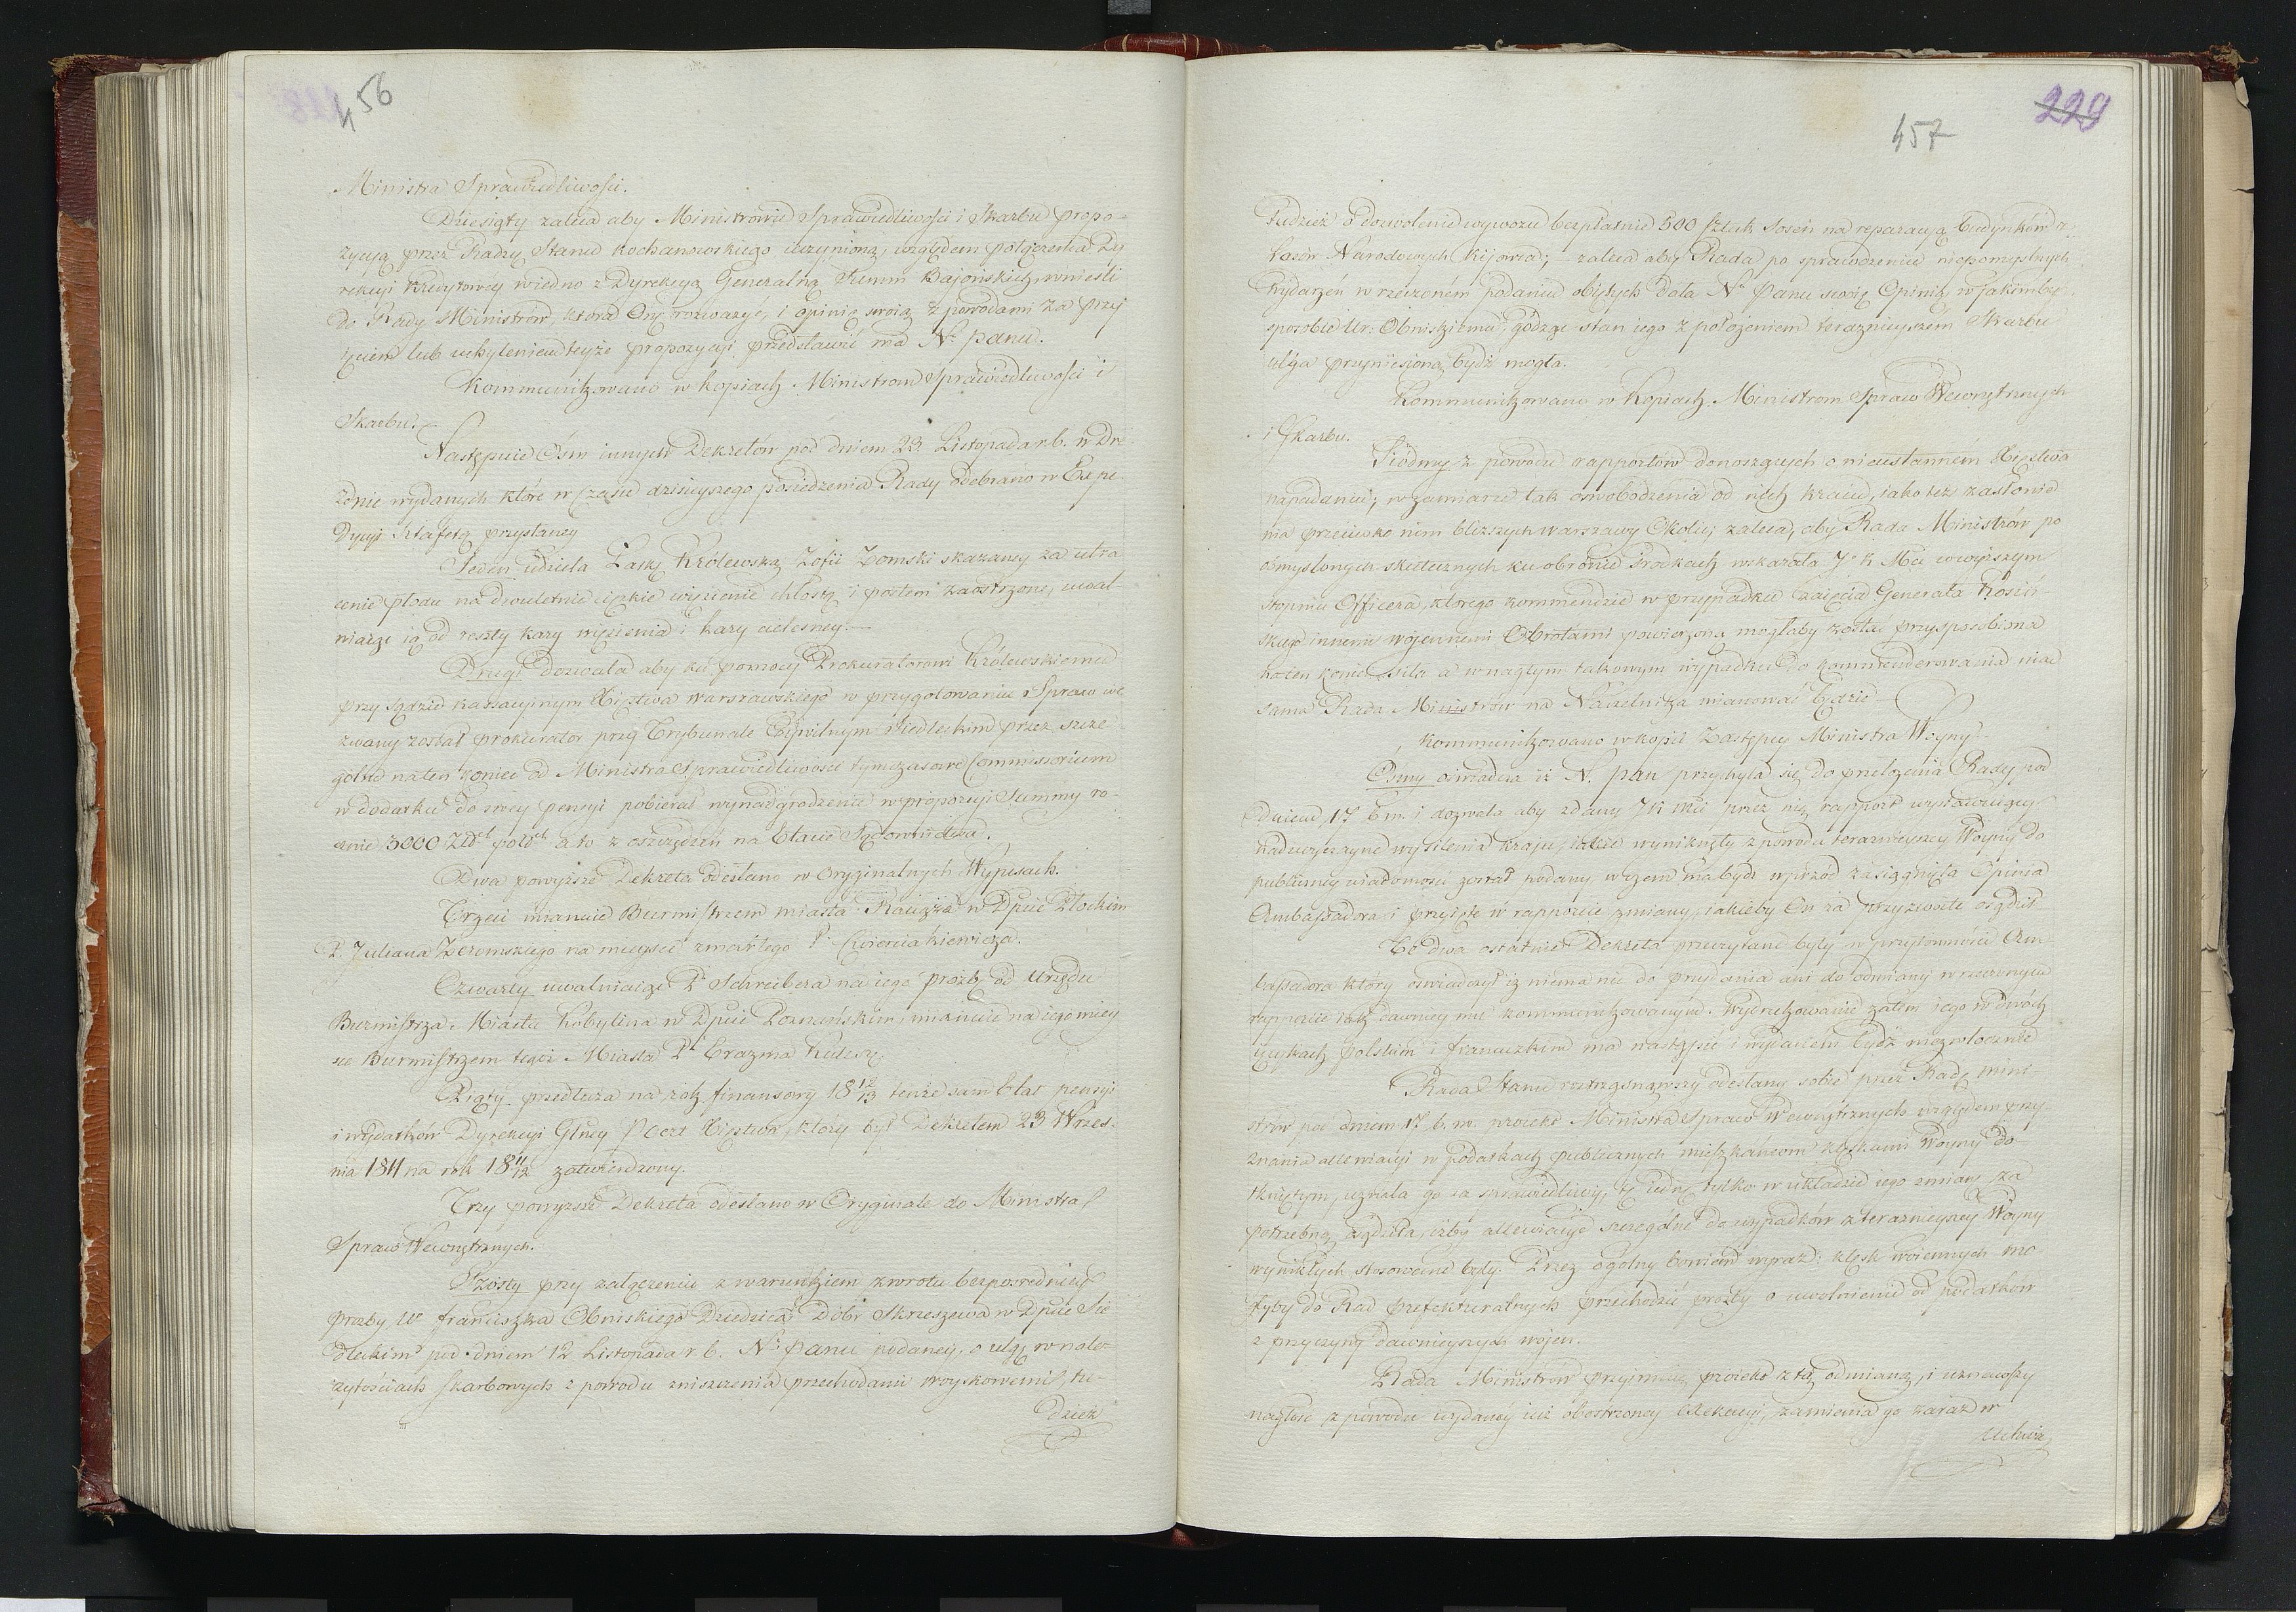 456
Ministra Sprawiedliwości.
Dziesiąty zaleca aby Ministrowie Sprawiedliwości i Skarbu propo-
zycyą przez Radzcę Stanu Kochanowskiego uczynioną, względem połączenia Dy
rekcyi Kredytowéy wiedno z Dyrekcyą Generalną Summ Bajońskich, wnieśli
do Rady Ministrów, która Onę rozważyć, i opinię swoią z powodami za przy
ięciem lub uchyleniem teyże propozycyi przedstawić ma Nu Panu.
Kommunikowano w kopiach Ministrom Sprawiedliwości i
Skarbu.
Następuie Ośm innych Dekretów pod dniem 23. Listopada r. b. w Dre
znie wydanych które w czasie dzisieyszego posiedzenia Rady odebrano w Expe
dycyi Sztafetą przysłaney
Jeden udziela Łaskę Królewską Zofii Zomski skazaney za utra
cenie płodu na dwuletnie ciężkie więzienie chłostą i postem zaostrzone, uwal-
niaiąc ią od reszty kary więzienia i kary cielesney.
Drugi Dozwala aby ku pomocy Prokuratorowi Królewskiemu
przy Sądzie Kassacyinym Xięstwa Warszawskiego w przygotowaniu Spraw we
zwany został prokurator przy Trybunale Cywilnym Siedleckim przez szcze
gólne na ten koniec od Ministra Sprawiedliwości tymczasowe Commissorium
w dodatku do swey pensyi pobierał wynadgrodzenie w proporcyi Summy ro-
cznie 3000 Złch polch a to z oszczędzeń na Etacie Sądownictwa.
Dwa powyższe Dekreta odesłano w Oryginalnych Wypisach.
Trzeci mianuie Burmistrzem miasta Raciąża w Dpcie Płockim
P. Juliana Żeromskiego na mieysce zmarłego P. Cwierciakiewicza.
Czwarty uwalniaiąc P. Schreibera na iego prożbę od Urzędu
Burmistrza Miasta Kobylina w Dpcie Poznańskim, mianuie na iego miey
sce Burmistrzem tegoż Miasta P. Erazma
Piąty przedłuża na rok finansowy 18 12/13 tenże sam Etat pensyi
i wydatków Dyrekcyi Głney Poczt Xięstwa, który był Dekretem 23 Wrześ-
nia 1811 na rok 18 11/12 zatwierdzony.
Trzy powyższe Dekreta odesłano w Oryginale do Ministra
Spraw Wewnętrznych.
Szósty przy załączeniu z warunkiem zwrotu bezpośredniey
prożby Ur Franciszka Obniskiego Dziedzica Dóbr Skrzeszewa w Dpcie Sie
dleckim pod dniem 12 Listopada r. b. Nu Panu podaney, o ulgę w nale-
żytościach skarbowych z powodu zniszczenia przechodami woyskowemi, tu-
dzież
229
457
Tudzież o dozwolenie wywozu bezpłatnie 500 sztuk Sosen na reparacyą budynków z
Lasów Narodowych Kijowca; – zaleca aby Rada po sprawdzeniu niepomyślnych
wydarzeń w rzeczoném podaniu obiętych dała Nu Panu swoię Opinią w jakimby
sposobie Ur: Obniskiemu, godząc stan iego z położeniem teraznieyszém Skarbu
ulga przyniesioną bydź mogła.
Kommunikowano w Kopiach Ministrom Spraw Wewnętrznych
i Skarbu.
Siódmy z powodu rapportów donoszących o nieustanném Xięstwa
napadaniu; w zamiarze tak oswobodzenia od nich kraiu, iako też zasłonie
nia przeciwko nim bliższych Warszawy Okolic, zaleca, aby Rada Ministrów po
obmyślonych skutecznych ku obronie środkach wskazała J. K. Mci w wyższym
stopniu Officera, którego kommendzie w przypadku zaięcia Generała Kosiń-
skiego innemi woiennemi Obrotami powierzoną mogłaby zostać przysposobiona
na ten koniec siła a w nagłym takowym wypadku do kommenderowania nią
sama Rada Ministrów na Naczelnika mianować będzie
Kommunikowano w kopii Zastępcy Ministra Woyny.
Osmy oświadcza iż N. Pan przychyla się do przełożenia Rady pod
dniem 17 b. m. i dozwala aby zdany J K Mci przez nię rapport wystawuiący
nadzwyczayne wysilenia kraju, iakie wyniknęły z powodu teraznieyszey Woyny do
publiczney wiadomości został podany w czem ma bydź wprzód zasiągnięta Opinia
Ambassadora i przyięte w rapporcie zmiany, iakieby On za przyzwoite osądził
Te dwa ostatnie Dekreta przeczytane były w przytomności Am-
bassadora który oświadczył iż niema nic do przydania ani do odmiany w rzeczonym
rapporcie iak dawniey mu kommunikowanym. Wydrukowanie zatém iego w dwóch
ięzykach polskim i francuzkim ma nastąpić i wydaném bydź niezwłocznie
Rada Stanu roztrząsnąwszy odesłany sobie przez Radę mini-
strów pod dniem 17. b. m. proiekt Ministra Spraw Wewnętrznych względem przy
znania allewiacyi w podatkach publicznych mieszkańcom klęskami Woyny do-
tkniętym, uznała go za sprawiedliwy, tę iednę tylko w układzie iego zmianę za
potrzebną osądziła, iżby allewiacye szczególnie do wypadków z teraznieyszey Woyny
wynikłych stosowane były. Przez ogólny bowiem wyraz: klęsk woiennych mo
głyby do Rad prefekturalnych przechodzić prożby o uwolnienie od podatków
z przyczyny dawnieyszych woien.
Rada Ministrów przyimuiąc proiekt z tą odmianą, i uznawszy
nagłość z powodu wydanéy iuż obostrzoney Exekucyi, zamienia go zaraz w
Uchwałę